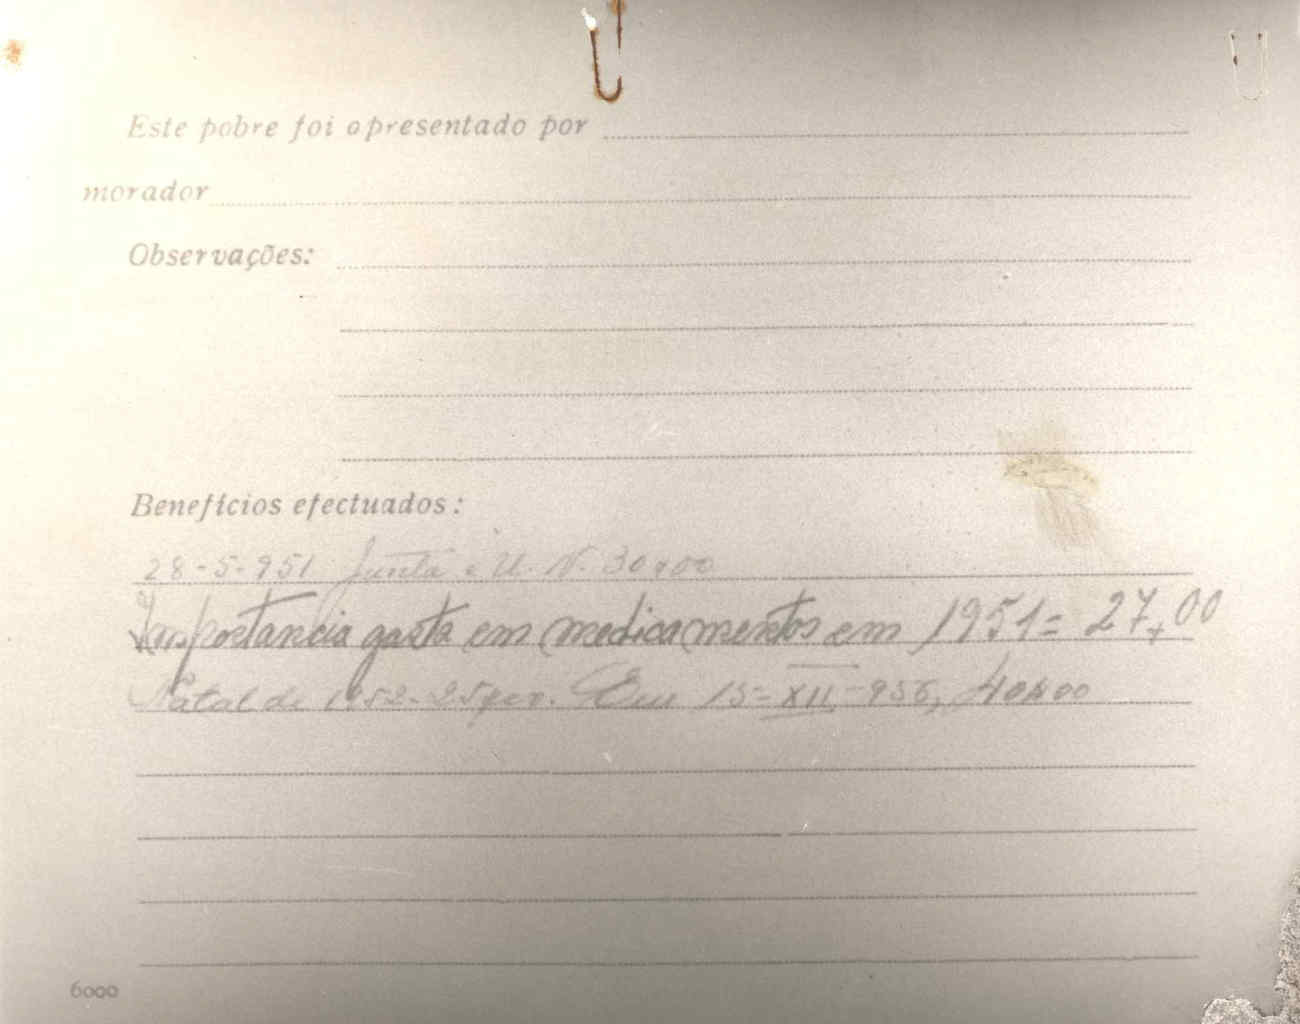 Este pobre foi apresentado por
morador
Observações:
Benefícios efectuados:
28-5-951 Junta e U. N. 30$00
Importancia gasta em medicamentos em 1951= 27,00
Natal de 1952- 25 Em 15=XII-956, 40$00
6000